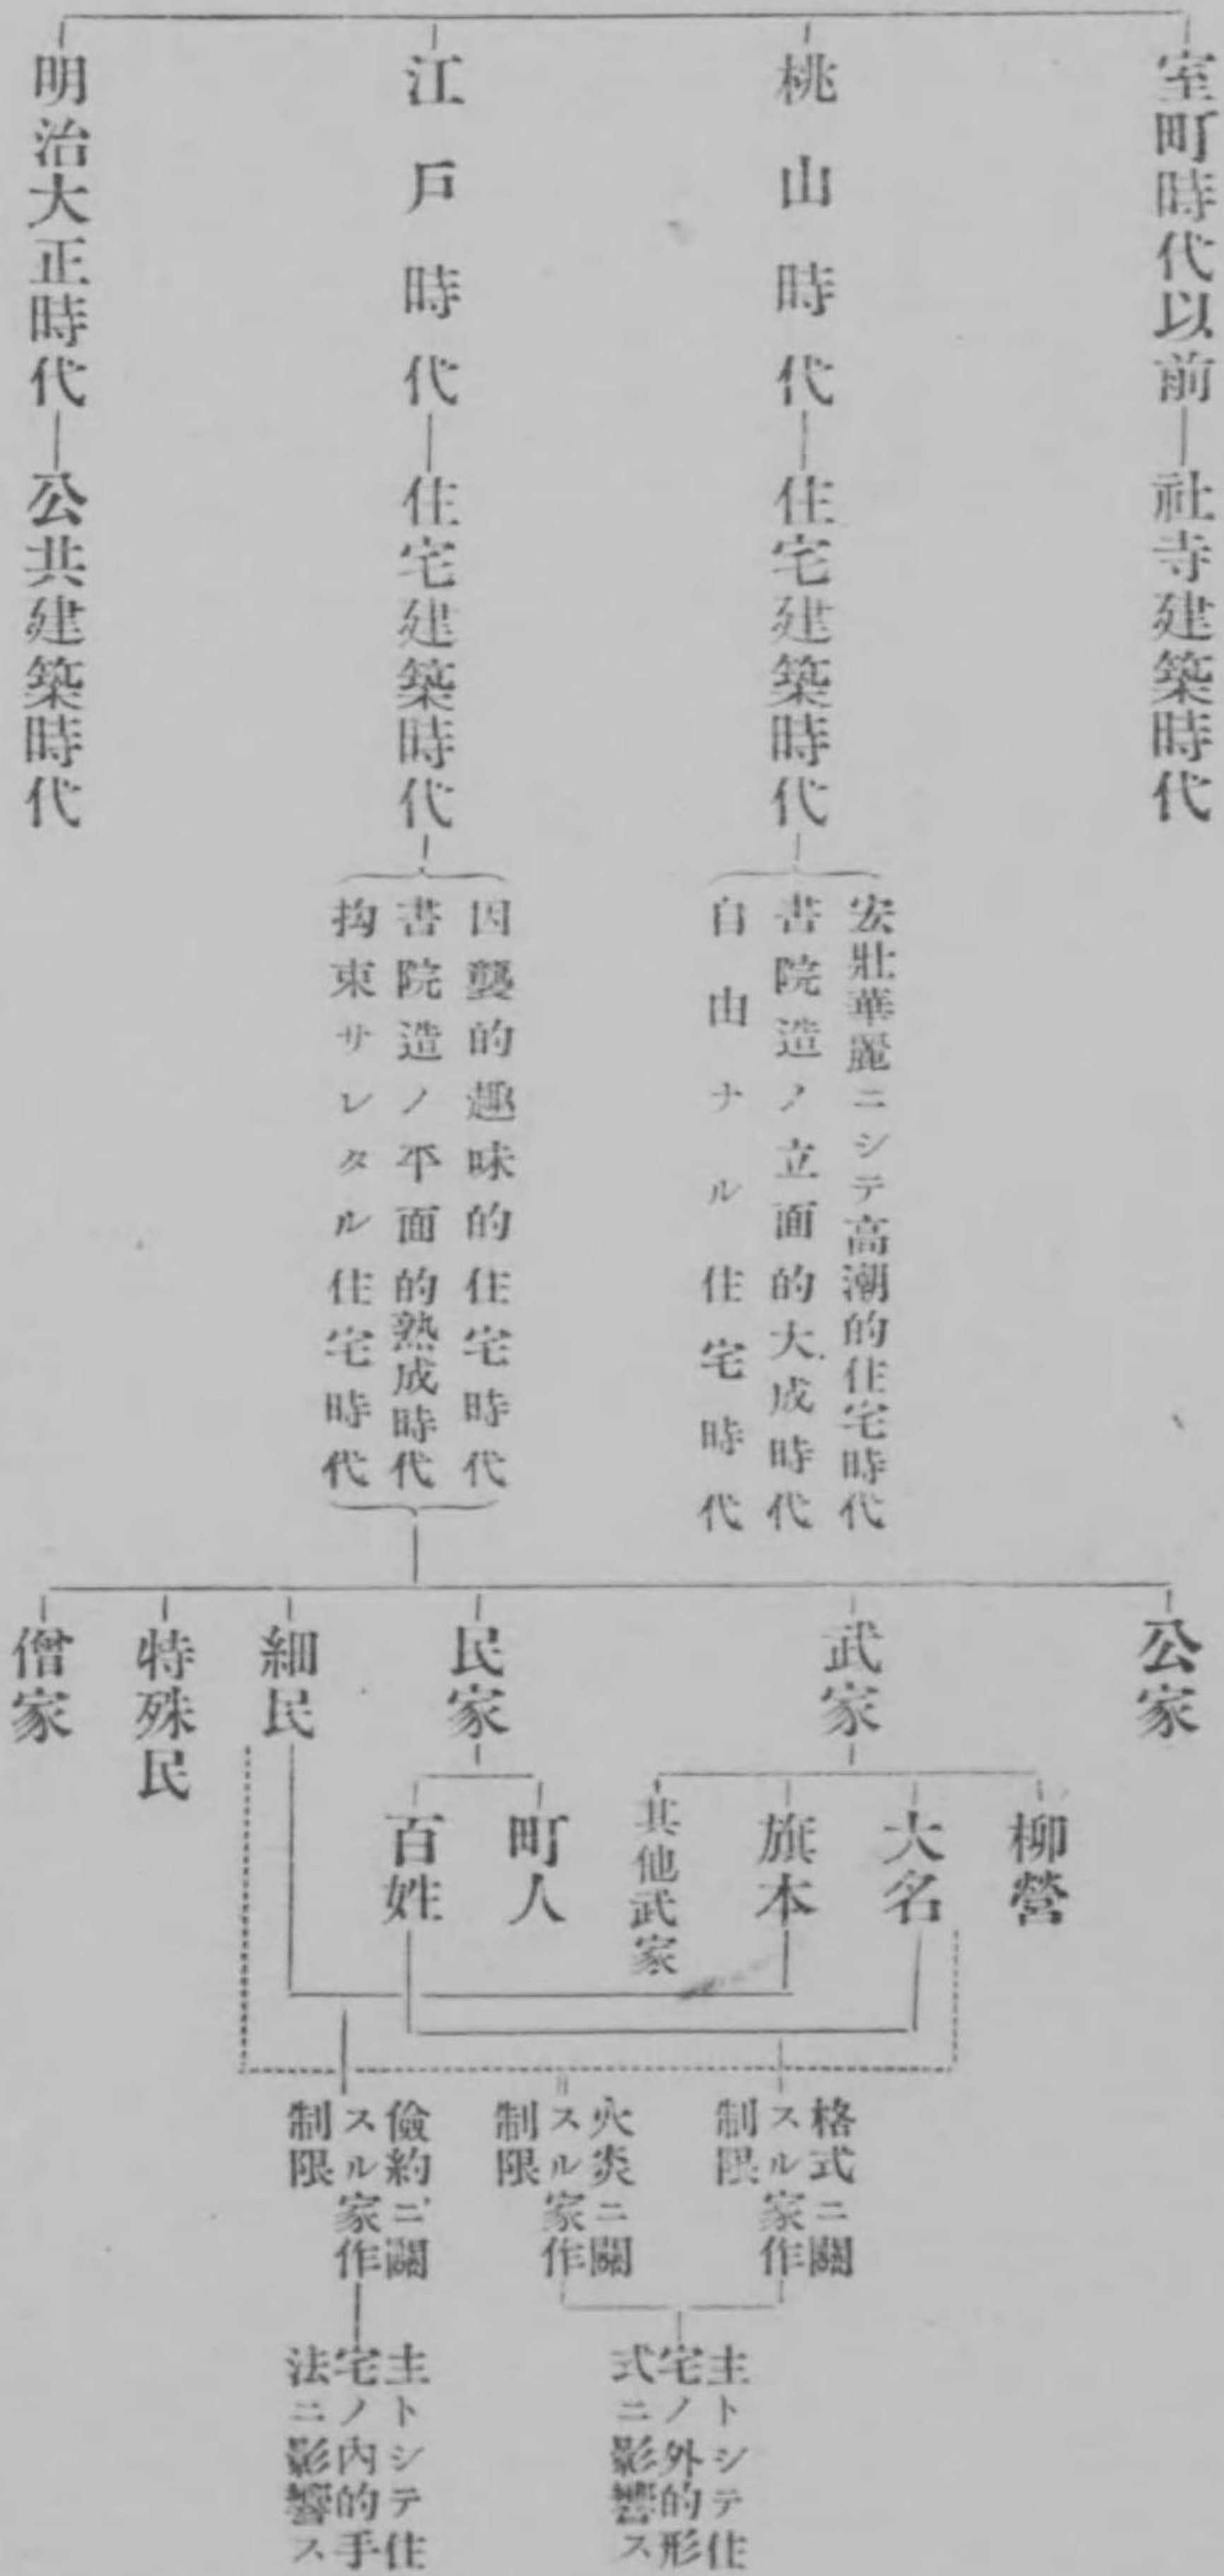 室町時代以前―社寺建築時代
桃山時代―住宅建築時代
宏壯華麗ニシテ高潮的住宅時代
書院造ノ立面的大成時代
自由ナル住宅時代
江戶時代―住宅建築時代
因襲的趣味的住宅時代
書院造ノ平面的熟成時代
拘束サレタル住宅時代
明治大正時代―公共建築時代
公家
武家
柳營
大名
旗本
其他武家
民家
町人
百姓
細民
特殊民
僧家
格式ニ關
スル家作
制限
火災ニ關
スル家作
制限
儉約ニ關
スル家作
制限
主トシテ住
宅ノ外的形
式ニ影響ス
主トシテ住
宅ノ內的手
法ニ影響ス